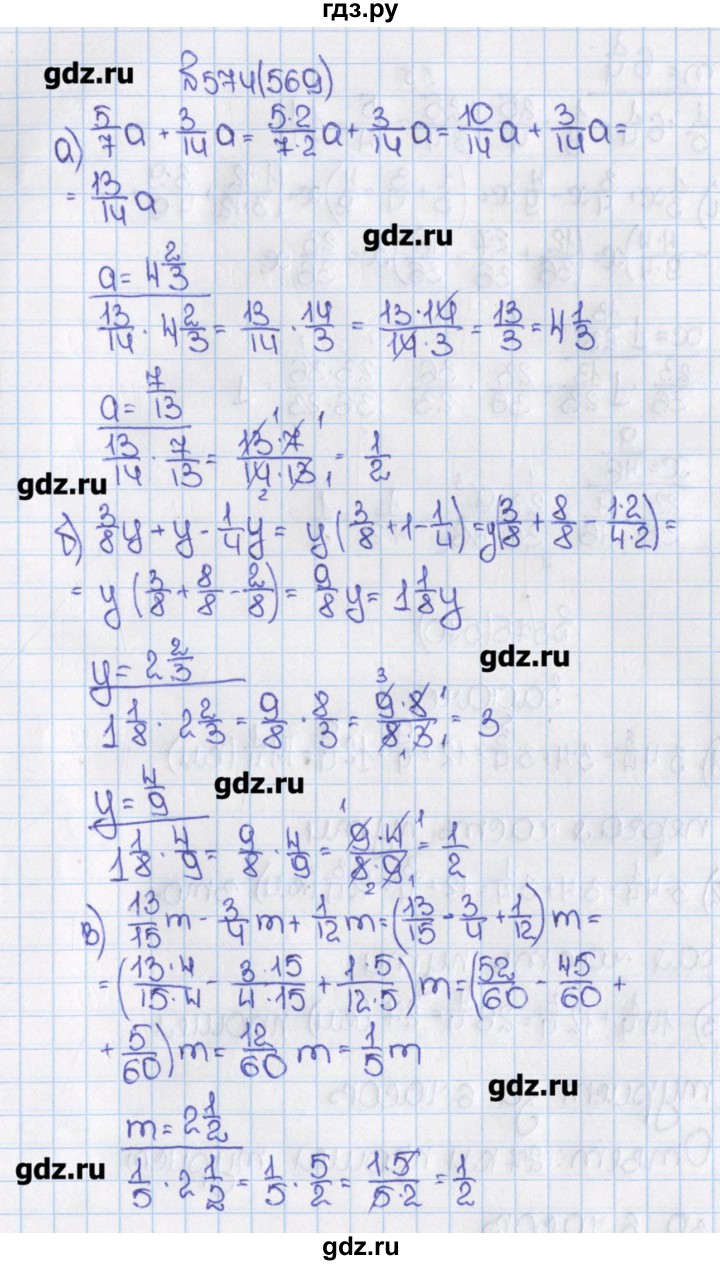 гдз.ру
gdz.ru
№574(569)
а) 5/7 a + 3/14 a = 5·2/7·2 a + 3/14 a = 10/14 a + 3/14 a =
= 13/14 a
gdz.ru
a = 4 2/3
13/14 · 4 2/3 = 13/14 · 14/3 = 13·14/14·3 = 13/3 = 4 1/3
a = 7/13
13/14 · 7/13 = 13·7/14·13 = 1/2
gdz.ru
б) 3/8 y + y - 1/4 y = y (3/8 + 1 - 1/4) = y(3/8 + 8/8 - 1·2/4·2) =
= y (3/8 + 8/8 - 2/8) = 9/8 y = 1 1/8 y
gdz.ru
y = 2 2/3
1 1/8 · 2 2/3 = 9/8 · 8/3 = 9·8/8·3 = 3
gdz.ru
y = 4/9
1 1/8 · 4/9 = 9/8 · 4/9 = 9·4/8·9 = 1/2
в) 13/15 m - 3/4 m + 1/12 m = (13/15 - 3/4 + 1/12) m =
= (13·4/15·4 - 3·15/4·15 + 1·5/12·5) m = (52/60 - 45/60 +
+ 5/60) m = 12/60 m = 1/5 m
gdz.ru
m = 2 1/2
gdz.ru
1/5 · 2 1/2 = 1/5 · 5/2 = 1·5/5·2 = 1/2
gdz.ru